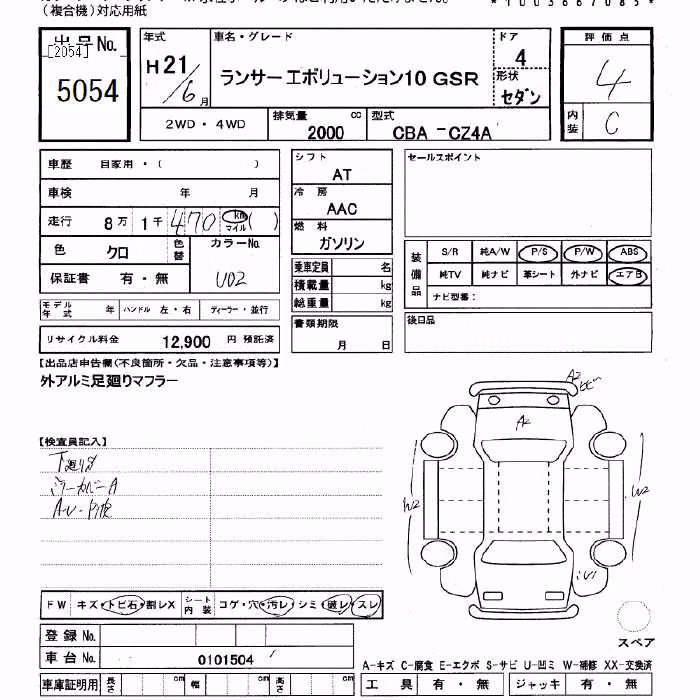 （複合機）対応用紙
*1003667085*
出品No.
[2054]
5054
年式
H21/6月
車名・グレード
ランサーエボリューション10 GSR
ドア
4
形状
セダン
評価点
4
内装
C
2WD・4WD
排気量 cc
2000
型式
CBA-CZ4A
車歴 自家用・( )
車検 年 月
走行 8万 1千 470 km マイル ( )
色 クロ 色替
カラーNo. U02
保証書 有・無
モデル年式 年 ハンドル 左・右 ディーラー・並行
リサイクル料金 12,900 円 預託済
シフト
AT
冷房
AAC
燃料
ガソリン
乗車定員 名
積載量 kg
総重量 kg
書類期限
月 日
セールスポイント
装備品
S/R 純A/W P/S P/W ABS
純TV 純ナビ 革シート 外ナビ エアB
ナビ型番：
後日品
【出品店申告欄(不良箇所・欠品・注意事項等)】
外アルミ足廻りマフラー
【検査員記入】
下廻りS
ミラーカバーA
A2
A2
W2
W2
U1
FW キズ・トビ石・割レX シート内装 コゲ・穴・汚レ・シミ・破レ・スレ
登録No.
車台No. 0101504
車庫証明用 長さ cm 幅 cm 高さ cm
スペア
A-キズ C-腐食 E-エクボ S-サビ U-凹ミ W-補修 XX-交換済
工具 有・無 ジャッキ 有・無